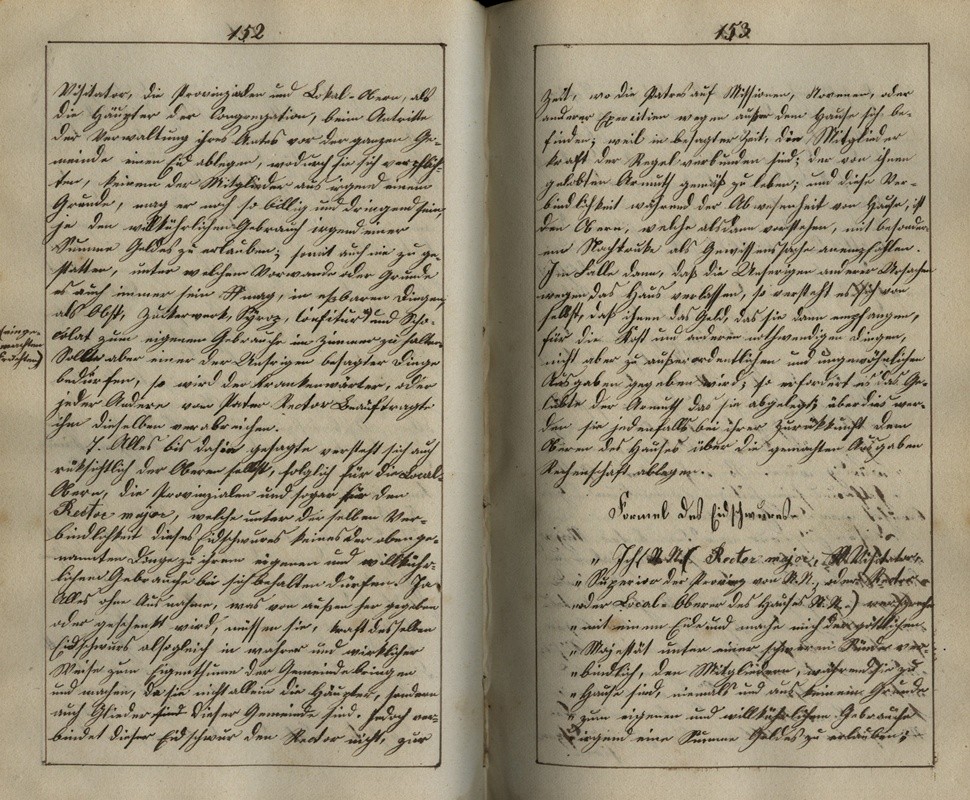 152
Visitator, die Provinzialen und Lokal-Obern, als
die Häupter der Congregation, beim Antritte
der Verwaltung ihres Amtes vor der ganzen Ge-
meinde einen Eid ablegen, wodurch sie sich verpflich-
ten, keinem der Mitglieder aus irgend einem
Grunde, mag er noch so billig und dringend sein,
je den willkührlichen Gebrauch irgend einer
Summe Geldes zu erlauben; somit auch nie zu ge-
statten, unter welchem Vorwande oder Grunde
es auch immer sein mag, in eßbaren Dingen,
als Obst, Zuckerwerk, Syrop, Confitur und Scho-
(einge-
machten
Früchten)
colat zum eigenen Gebrauche im Zimmer zu halten.
Sollte aber einer der Unsrigen besagter Dinge
bedürfen, so wird der Krankenwärter, oder
jeder Andere vom Pater Rector Beauftragte
ihm dieselben verabreichen.
7. Alles bis dahin gesagte versteht sich auch
rücksichtlich der Oberen selbst, folglich für die Local-
Obern, die Provinzialen und sogar für den
Rector major, welche unter der selben Ver-
bindlichkeit dieses Eidschwures keines der obenge-
nannten Dinge zu ihrem eigenen und willkühr-
lichen Gebrauche bei sich behalten dürfen. Ja
Alles ohne Ausnahme, was von außen her gegeben
oder geschenkt wird, müssen sie, kraft desselben
Eidschwurs alsogleich in wahrer und wirklicher
Weise zum Eigenthume der Gemeinde bringen
und machen, da sie nicht allein die Häupter, sondern
auch Glieder dieser Gemeinde sind. Jedoch ver-
bindet dieser Eidschwur den Rector nicht, zur
153
Zeit, wo die Patres auf Missionen, Novenen, oder
anderer Exercitien wegen außer dem Hause sich be-
finden; weil in besagter Zeit, die Mitglieder
kraft der Regel verbunden sind; der von ihnen
gelobten Armuth gemäß zu leben; und diese Ver-
bindlichkeit während der Abwesenheit von Hause, ist
den Obern, welche alsdann vorstehen, mit besonde-
rem Nachdrucke als Gewissenssache anempfohlen.
Im Falle dann, daß die Unsrigen anderer Ursachen
wegen das Haus verlassen, so versteht es sich von
selbst, daß ihnen das Geld, das sie dann empfangen,
für die Kost und anderen nothwendigen Dingen,
nicht aber zu außerordentlichen und ungewöhnlichen
Ausgaben gegeben wird; so erfordert es das Ge-
lübte der Armuth das sie abgelegt; überdies wer-
den sie jedenfalls bei ihrer Zurückkunft dem
Oberen des Hauses über die gemachten Ausgaben
Rechenschaft ablegen.
Formel des Eidschwures.
„ Ich (N.N. Rector major, N. Visitator
„ Superior der Provinz von N.N., oder Rector
„ oder Local-Oberer des Hauses N.N.) verspreche
„ mit einem Eide und mache mich der göttlichen
„ Majestät unter einer schweren Sünde ver-
„ bindlich, den Mitgliedern, während sie zu
„ Hause sind, niemals und aus keinem Grunde
„ zum eigenen und willkührlichen Gebrauche
„ irgend eine Summe Geldes zu erlauben;